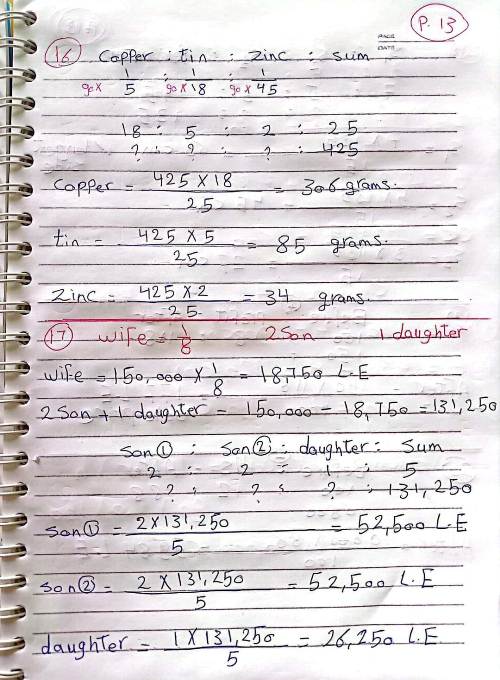 P. 13
PAGE
DATE
16 Copper : tin : Zinc : sum
90× 1/5 : 90× 1/18 : 90× 1/45
18 : 5 : 2 : 25
? : ? : ? : 425
Copper = 425 × 18 / 25 = 306 grams.
tin = 425 × 5 / 25 = 85 grams.
Zinc = 425 × 2 / 25 = 34 grams.
17 wife = 1/8 2 Son 1 daughter
wife = 150,000 × 1/8 = 18,750 L.E
2 Son + 1 daughter = 150,000 - 18,750 = 131,250
Son ① : Son ② : daughter : Sum
2 : 2 : 1 : 5
? : ? : ? : 131,250
Son ① = 2 × 131,250 / 5 = 52,500 L.E
Son ② = 2 × 131,250 / 5 = 52,500 L.E
daughter = 1 × 131,250 / 5 = 26,250 L.E